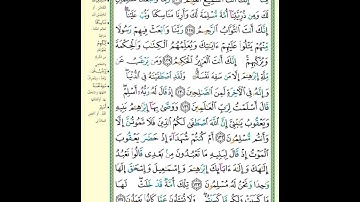 إِنَّكَ أَنتَ السَّمِيعُ الْعَلِيمُ ۝ رَبَّنَا وَاجْعَلْنَا مُسْلِمَيْنِ
لَكَ وَمِن ذُرِّيَّتِنَا أُمَّةً مُّسْلِمَةً لَّكَ وَأَرِنَا مَنَاسِكَنَا وَتُبْ عَلَيْنَا
إِنَّكَ أَنتَ التَّوَّابُ الرَّحِيمُ ۝ رَبَّنَا وَابْعَثْ فِيهِمْ رَسُولًا
مِّنْهُمْ يَتْلُوا عَلَيْهِمْ ءَايَاتِكَ وَيُعَلِّمُهُمُ الْكِتَابَ وَالْحِكْمَةَ
وَيُزَكِّيهِمْ إِنَّكَ أَنتَ الْعَزِيزُ الْحَكِيمُ ۝ وَمَن يَرْغَبُ عَن
مِّلَّةِ إِبْرَاهِيمَ إِلَّا مَن سَفِهَ نَفْسَهُ وَلَقَدِ اصْطَفَيْنَاهُ فِي الدُّنْيَا
وَإِنَّهُ فِي الْآخِرَةِ لَمِنَ الصَّالِحِينَ ۝ إِذْ قَالَ لَهُ رَبُّهُ أَسْلِمْ
قَالَ أَسْلَمْتُ لِرَبِّ الْعَالَمِينَ ۝ وَوَصَّى بِهَا إِبْرَاهِيمُ بَنِيهِ
وَيَعْقُوبُ يَا بَنِيَّ إِنَّ اللَّهَ اصْطَفَى لَكُمُ الدِّينَ فَلَا تَمُوتُنَّ إِلَّا
وَأَنتُم مُّسْلِمُونَ ۝ أَمْ كُنتُمْ شُهَدَاءَ إِذْ حَضَرَ يَعْقُوبَ
الْمَوْتُ إِذْ قَالَ لِبَنِيهِ مَا تَعْبُدُونَ مِن بَعْدِي قَالُوا نَعْبُدُ
إِلَٰهَكَ وَإِلَٰهَ ءَابَائِكَ إِبْرَاهِيمَ وَإِسْمَاعِيلَ وَإِسْحَاقَ إِلَٰهًا
وَاحِدًا وَنَحْنُ لَهُ مُسْلِمُونَ ۝ تِلْكَ أُمَّةٌ قَدْ خَلَتْ لَهَا
مَا كَسَبَتْ وَلَكُم مَّا كَسَبْتُمْ وَلَا تُسْأَلُونَ عَمَّا كَانُوا يَعْمَلُونَ